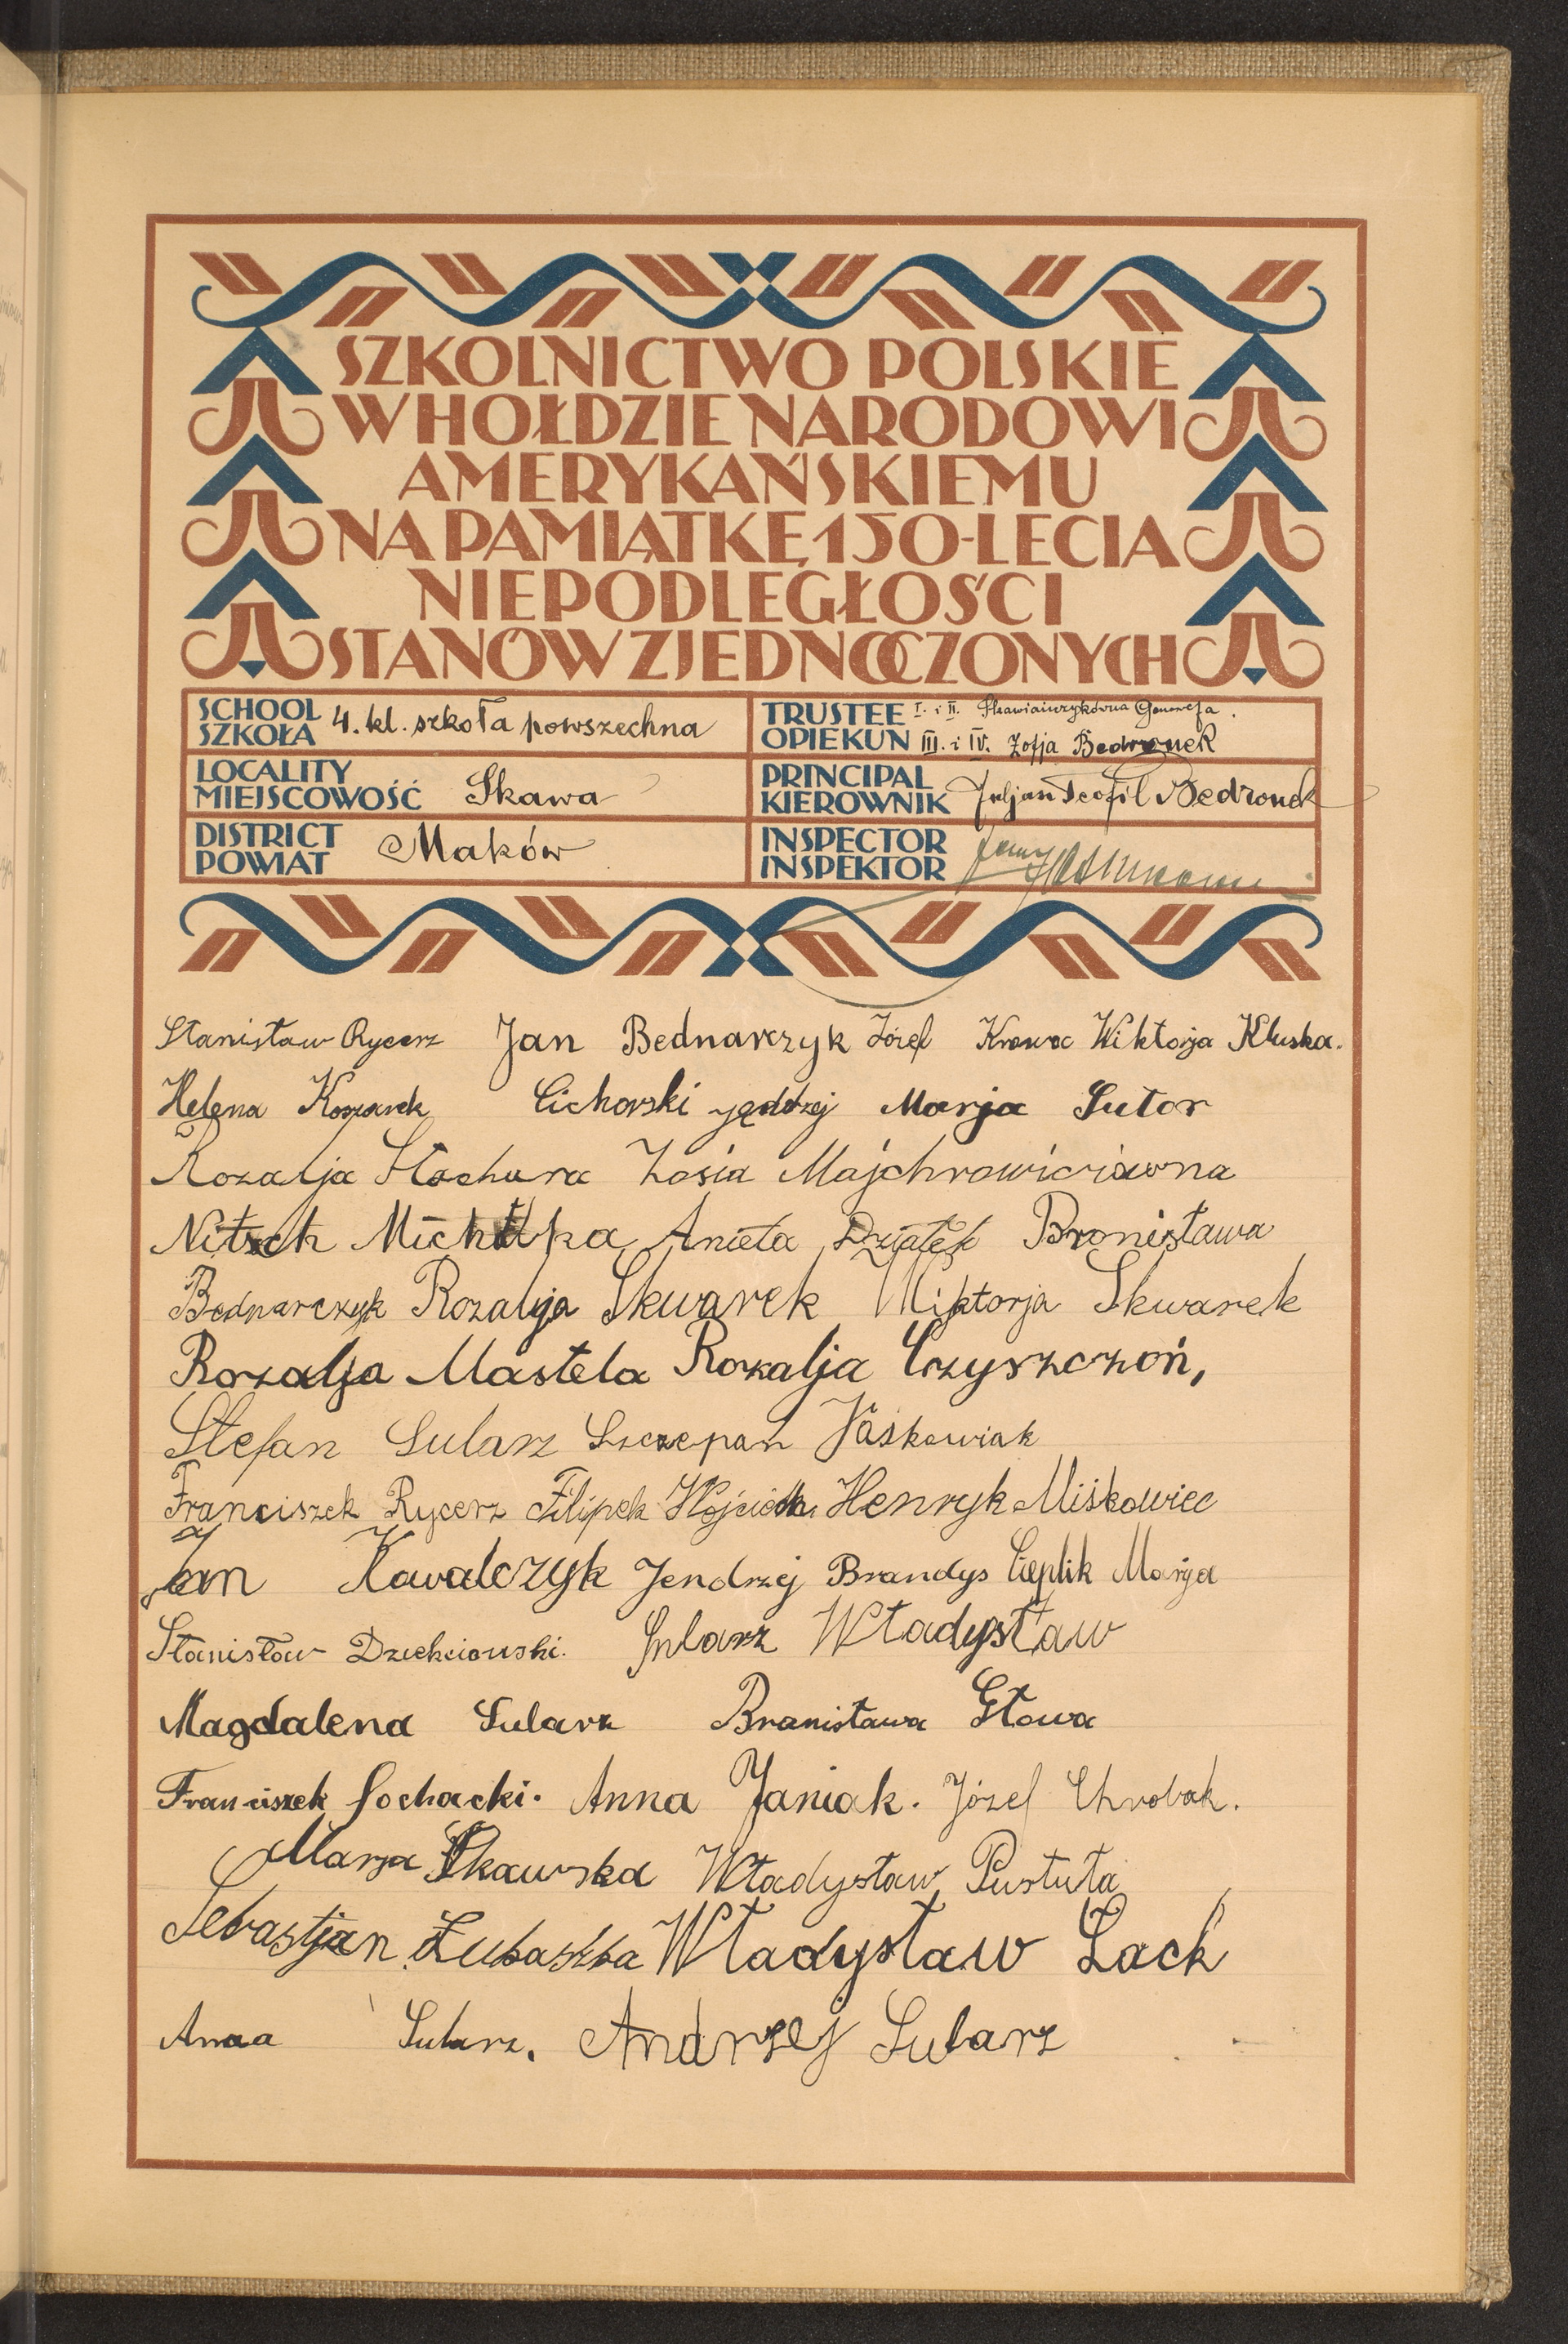 SZKOLNICTWO POLSKIE
W HOŁDZIE NARODOWI
AMERYKAŃSKIEMU
NA PAMIĄTKĘ 150-LECIA
NIEPODLEGŁOŚCI
STANÓW ZJEDNOCZONYCH
SCHOOL
SZKOŁA 4. kl. szkoła powszechna
TRUSTEE I. i II. Genowefa.
OPIEKUN III. i IV. Zofja Bedronek
LOCALITY
MIEJSCOWOŚĆ Skawa
PRINCIPAL
KIEROWNIK Juljan Teofil Bedronek
DISTRICT
POWIAT Maków
INSPECTOR
INSPEKTOR
Stanisław Rycerz Jan Bednarczyk Józef Krawc Wiktorja Kluska.
Helena Koszarek Cichorski Jędrzej Marja Sutor
Rozalja Stachura Zosia Majchrowiczówna
Nitsch Michałka Aniela Dziątek Bronisława
Bednarczyk Rozalja Skwarek Wiktorja Skwarek
Rozalja Mastela Rozalja Czyszczoń,
Stefan Sularz Szczepan Jaśkowiak
Franciszek Rycerz Filipek Wojciech Henryk Miśkowiec
Jan Kowalczyk Jendrzej Brandys Cieplik Marja
Stanisław Dziekciowski. Sularz Władysław
Magdalena Sularz Bronisława Głowa
Franciszek Sochacki. Anna Janiak. Józef Chrobak.
Marja Skawska Władysław Pustuła
Sebastjan Łubaszka Władysław Lach
Anna Sularz. Andrzej Sularz